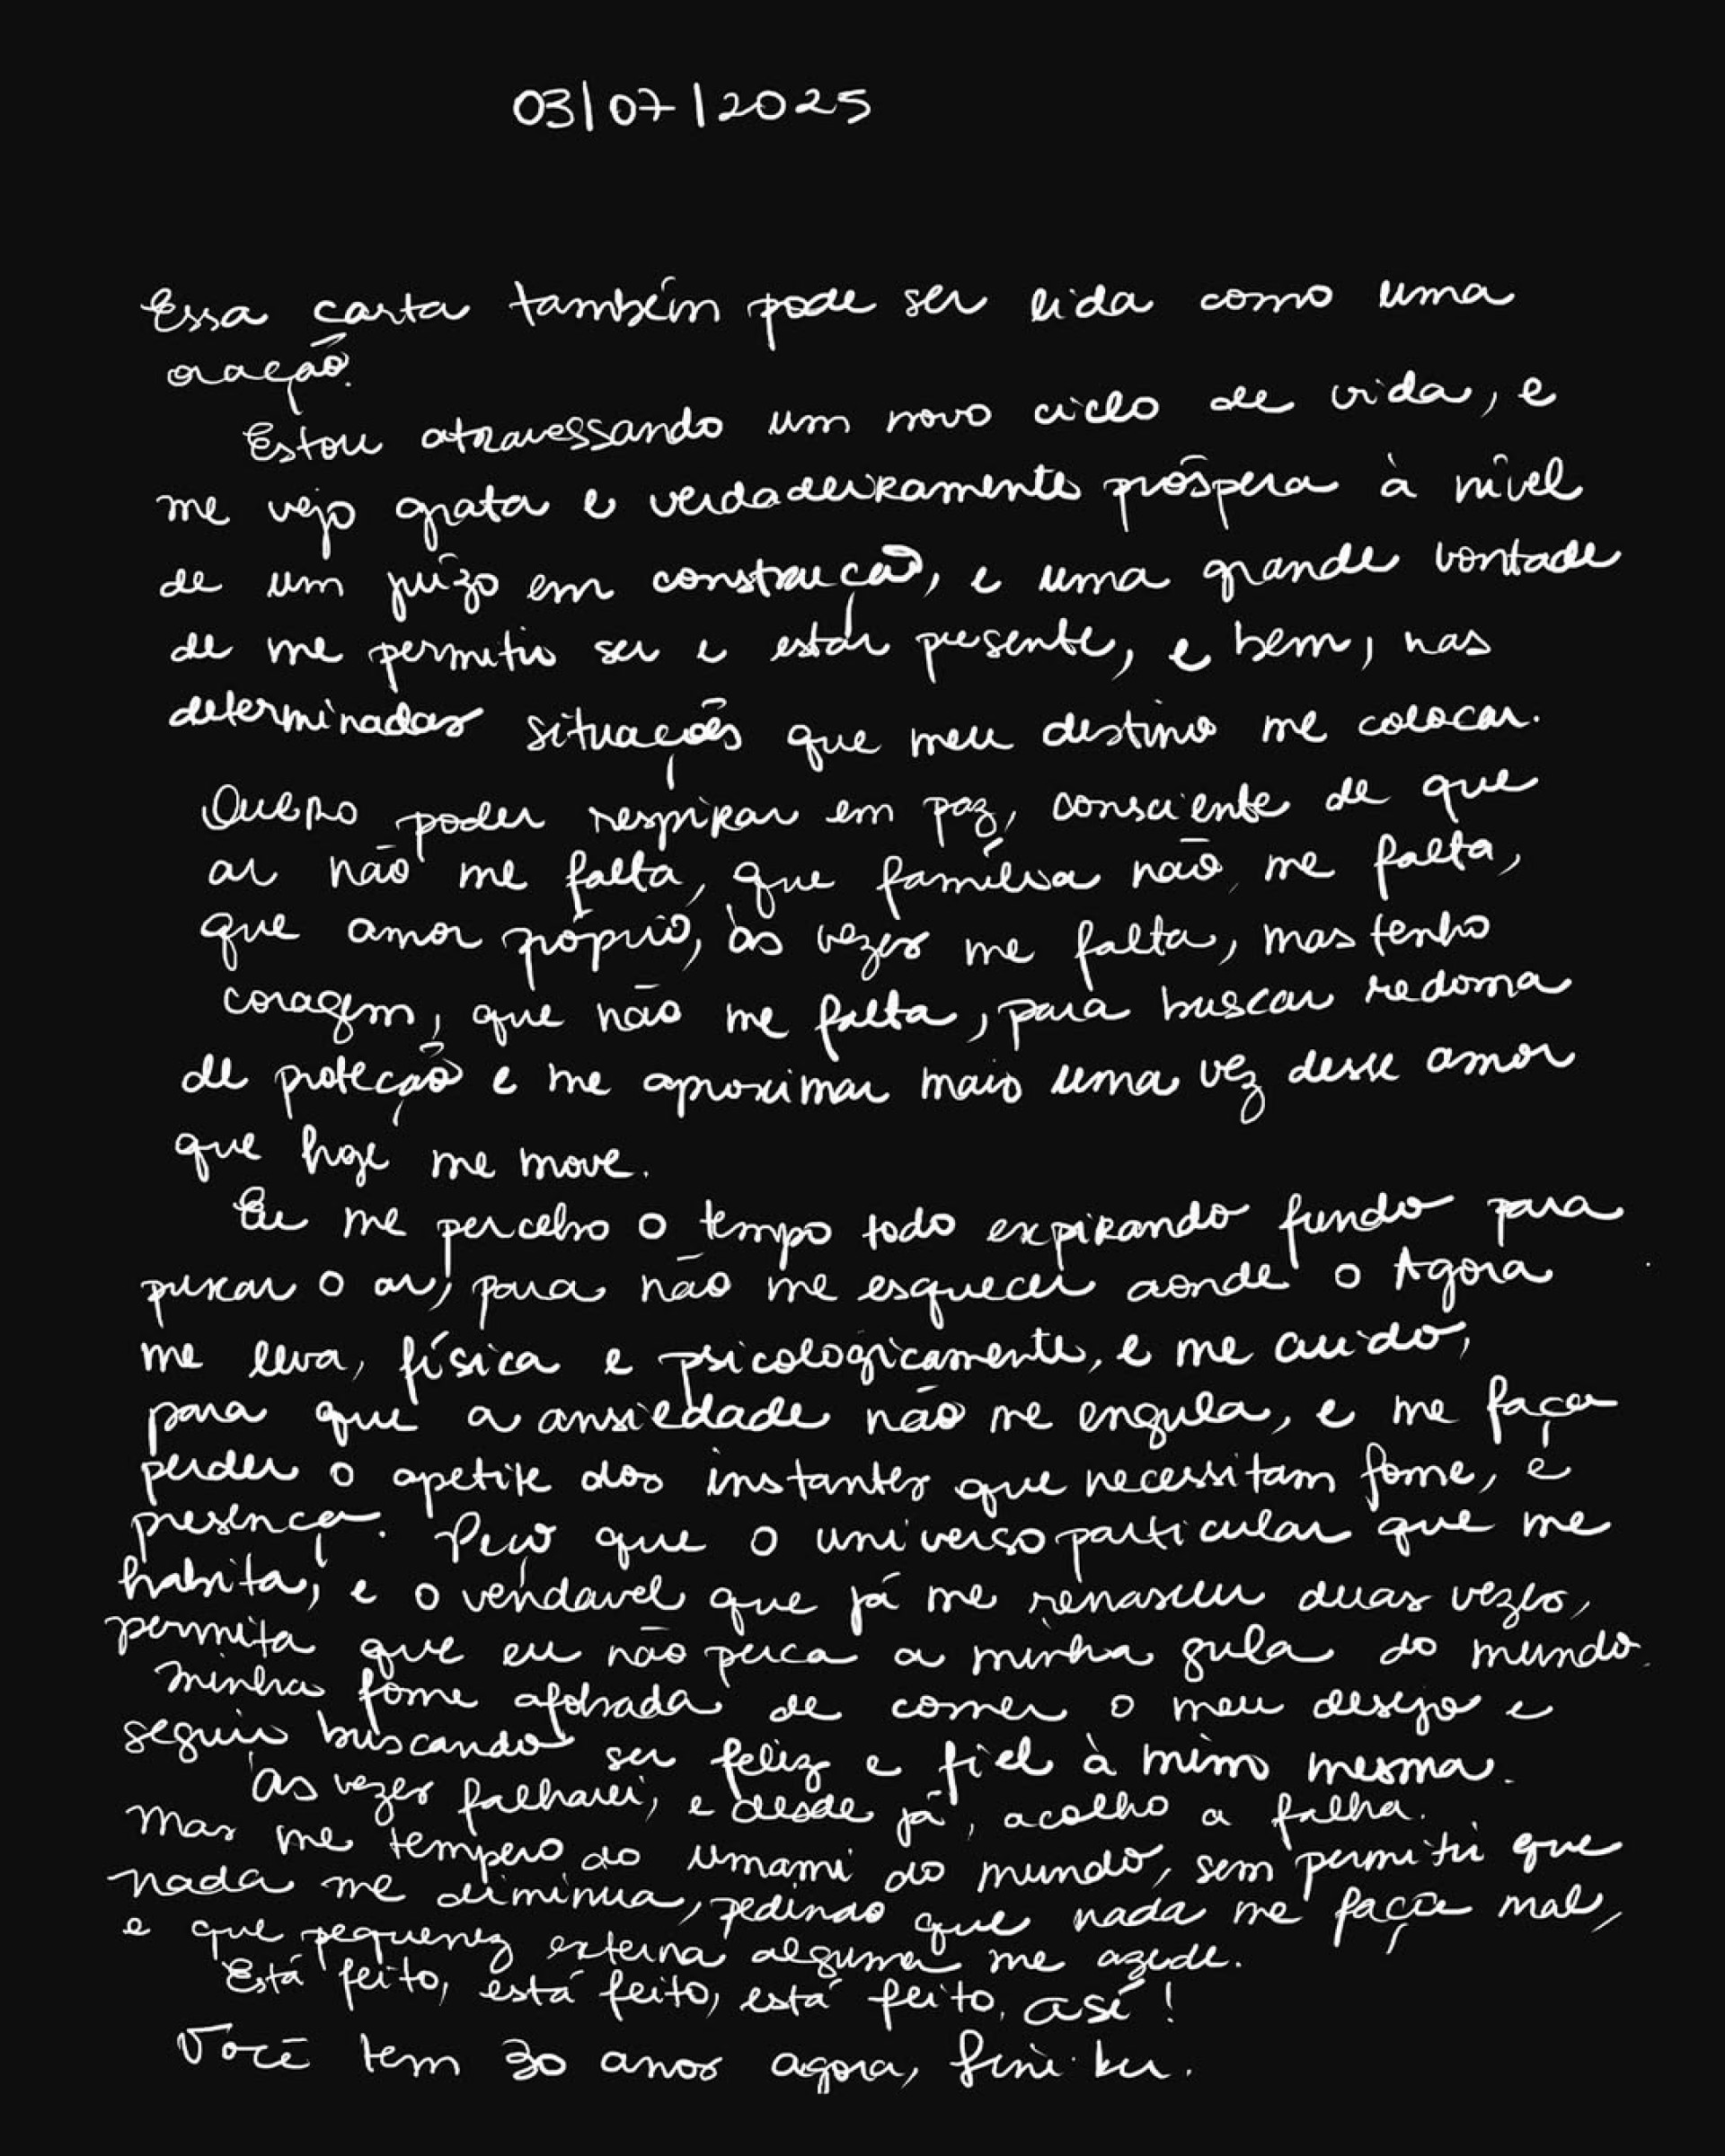 03/07/2025
Essa carta também pode ser lida como uma
oração.
Estou atravessando um novo ciclo de vida, e
me vejo grata e verdadeiramente próspera à nível
de um juízo em construção, e uma grande vontade
de me permitir ser e estar presente, e bem, nas
determinadas situações que meu destino me colocar.
Quero poder respirar em paz, consciente de que
ar não me falta, que família não me falta,
que amor próprio, às vezes me falta, mas tenho
coragem, que não me falta, para buscar redoma
de proteção e me aproximar mais uma vez desse amor
que hoje me move.
Eu me percebo o tempo todo expirando fundo para
puxar o ar, para não me esquecer aonde o Agora
me leva, física e psicologicamente, e me cuido,
para que a ansiedade não me engula, e me faça
perder o apetite dos instantes que necessitam fome, e
presença. Peço que o universo particular que me
habita, e o vendavel que já me renasceu duas vezes,
permita que eu não perca a minha gula do mundo.
Minha fome afobada de comer o meu desejo e
seguir buscando ser feliz e fiel à mim mesma.
Às vezes falharei, e desde já, acolho a falha.
Mas me tempero do umami do mundo, sem permitir que
nada me diminua, pedindo que nada me faça mal,
e que pequenez externa alguma me azede.
Está feito, está feito, está feito, asé!
Você tem 30 anos agora,